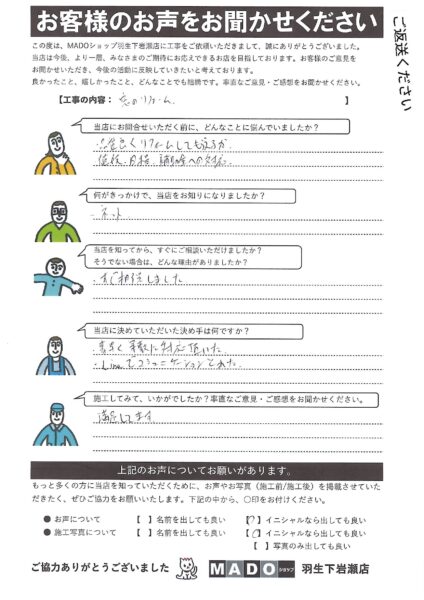 お客様のお声をお聞かせください
ご返送ください
この度は、MADOショップ羽生下岩瀬店に工事をご依頼いただきまして、誠にありがとうございました。
当店は今後、より一層、みなさまのご期待にお応えできるお店を目指しております。お客様のご意見を
お聞かせいただき、今後の活動に反映していきたいと考えております。
良かったこと、嬉しかったこと、どんなことでも結構です。率直なご意見・ご感想をお聞かせください。
【工事の内容： 窓のリフォーム 】
当店にお問合せいただく前に、どんなことに悩んでいましたか？
・品質良くリフォームしてもらえるか
・価格、日程、補助金への対応
何がきっかけで、当店をお知りになりましたか？
・ネット
当店を知ってから、すぐにご相談いただけましたか？
そうでない場合は、どんな理由がありましたか？
・すぐ相談しました
当店に決めていただいた決め手は何ですか？
・素早く 柔軟に対応頂いた
・Lineでコミュニケーションとれた
施工してみて、いかがでしたか？率直なご意見・ご感想をお聞かせください。
満足してます
上記のお声についてお願いがあります。
もっと多くの方に当店を知っていただくために、お声やお写真（施工前/施工後）を掲載させていた
だきたく、ぜひご協力をお願いいたします。下記の中から、〇印をお付けください。
● お声について 【 】名前を出しても良い 【〇】イニシャルなら出しても良い
● 施工写真について 【 】名前を出しても良い 【〇】イニシャルなら出しても良い
【 】写真のみ出しても良い
ご協力ありがとうございました MADOショップ 羽生下岩瀬店